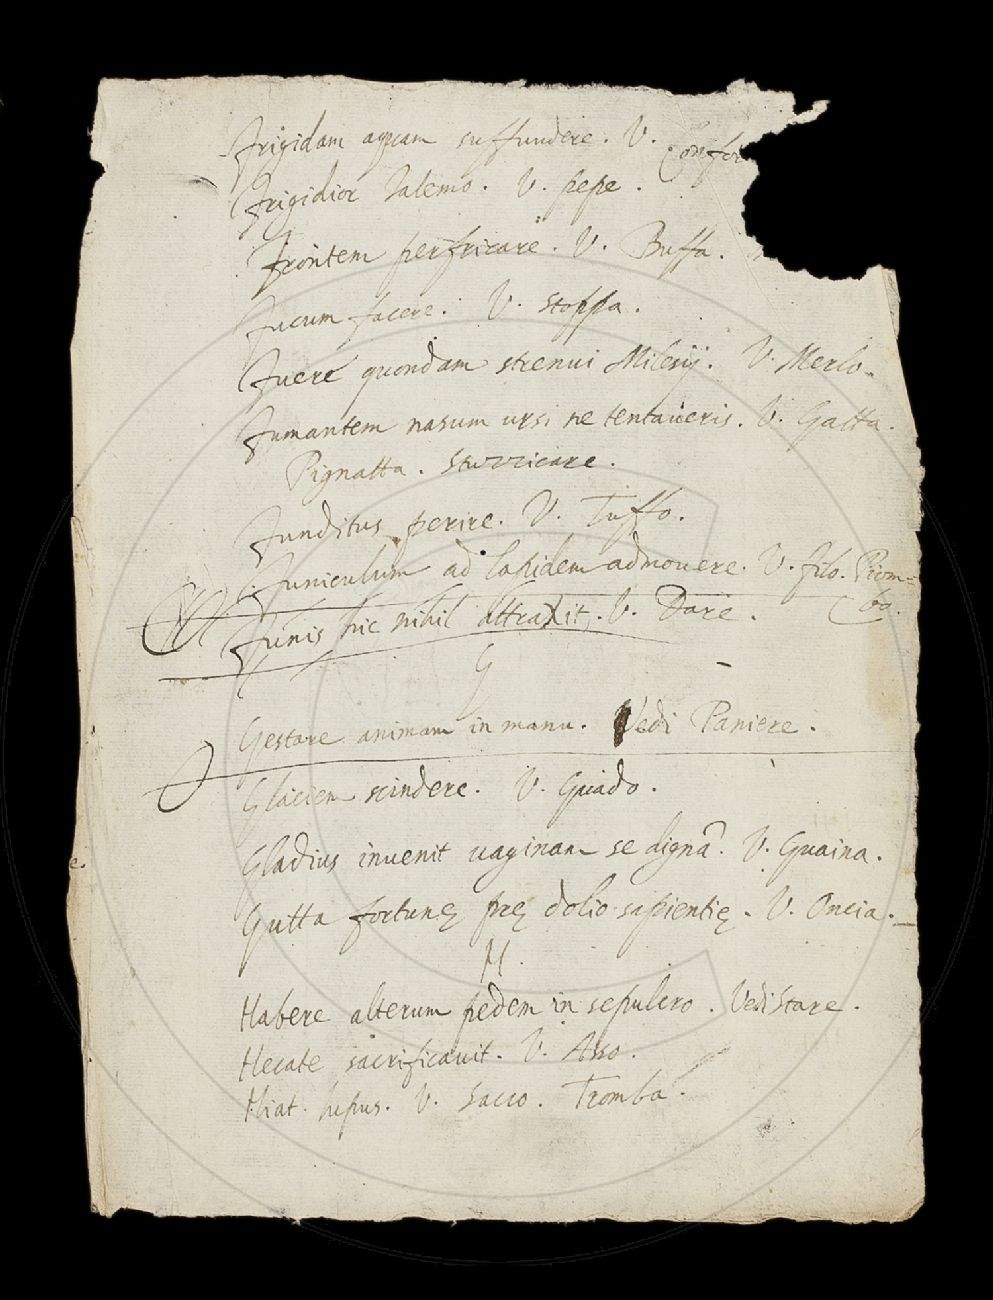 Frigidam aquam suffundere. V. Confor
Frigidior Ialemo. V. pepe.
Frontem perfricare. V. Buffa.
Fucum facere. V. Stoppa.
Fuere quondam strenui Milesij. V. Merlo.
Fumantem nasum ursi ne tentaueris. V. Gatta.
Pignatta. Stuzzicare.
Funditus perire. V. Tuffo.
Funiculum ad lapidem admouere. V. filo. Piom=
bo.
Funis hic nihil attraxit. V. Dare.
G
Gestare animam in manu. Vedi Paniere.
Glaciem scindere. V. Guado.
Gladius inuenit uaginam se dignã. V. Guaina.
Gutta fortunę prę dolio sapientię. V. Oncia.
H.
Habere alterum pedem in sepulcro. Vedi Stare.
Hecate sacrificauit. V. Asso.
Hiat lupus. V. Sacco. Tromba.